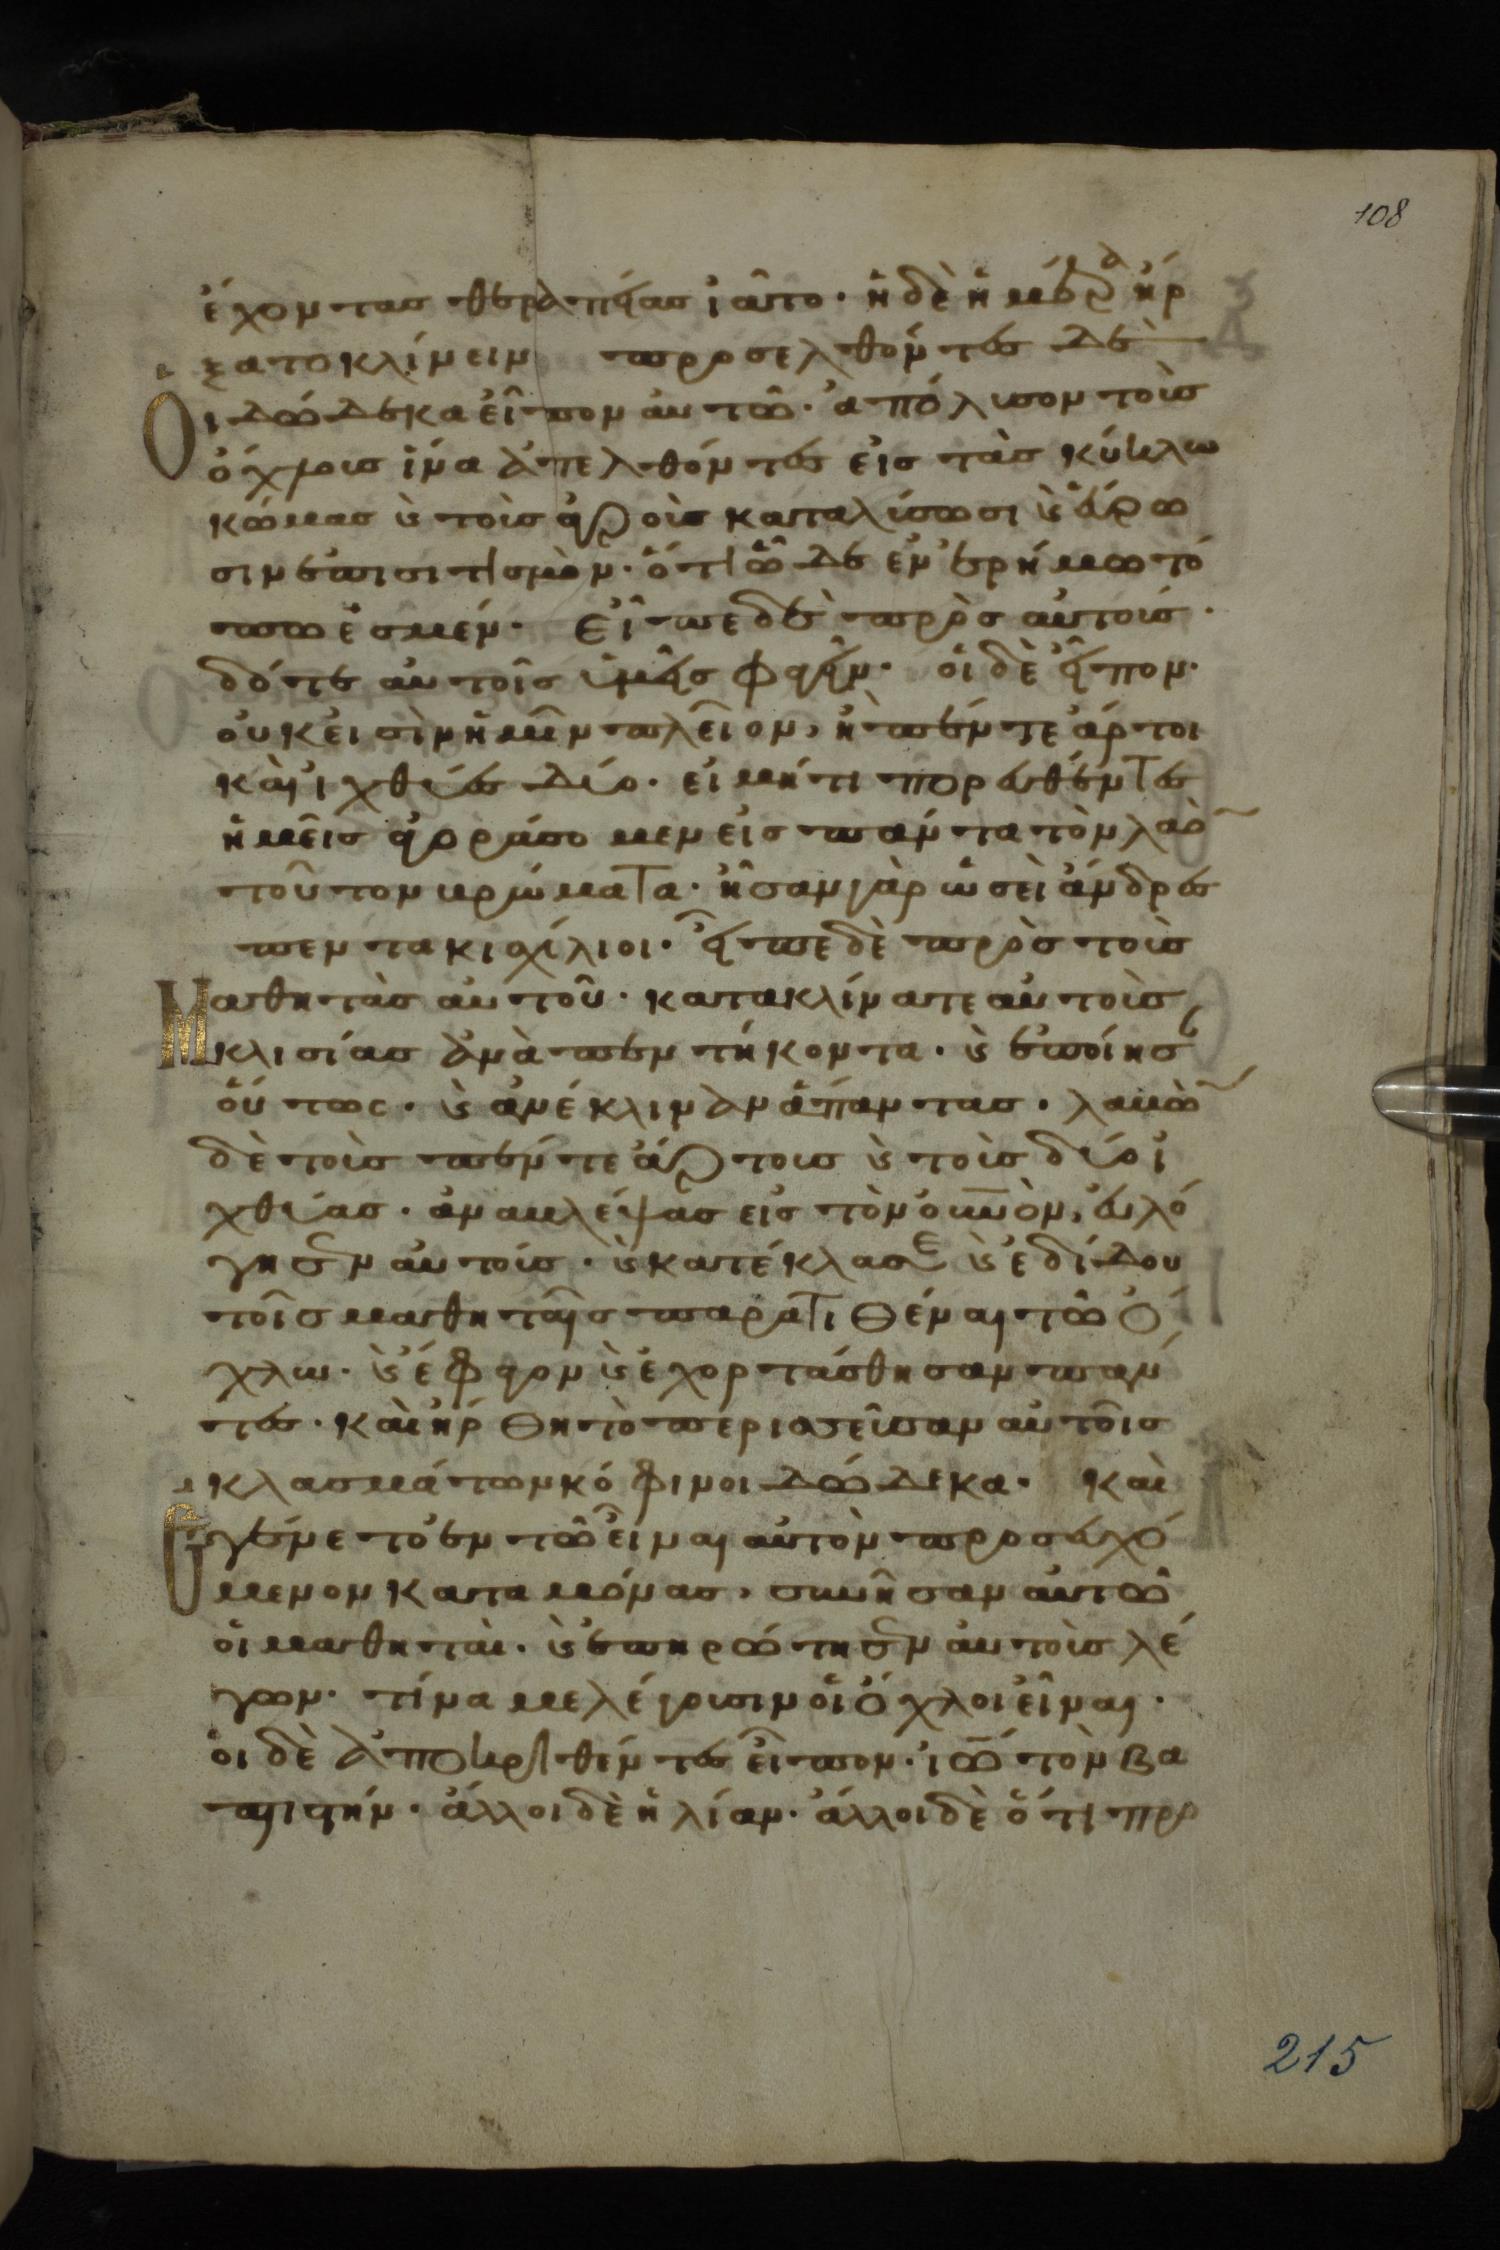 108
ἔχοντας θεραπείας ἰᾶτο· ἡ δὲ ἡμέρα ἤρ
ξατο κλίνειν προσελθόντες δὲ
Οἱ δώδεκα εἶπον αὐτῶ· ἀπόλυσον τοὺς
ὄχλους ἵνα ἀπελθόντες εἰς τὰς κύκλω
κώμας ϗ τοὺς ἀγροὺς καταλύσωσι ϗ εὕρω
σιν ἐπισιτισμὸν· ὅτι ὧδε ἐν ἐρήμω τό
πω ἐσμέν· Εἶπε δὲ πρὸς αὐτούς·
δότε αὐτοῖς ὑμεῖς φαγεῖν· οἱ δὲ εἶπον·
οὐκ εἰσὶν ἡμῖν πλεῖον, ἢ πέντε ἄρτοι
καὶ ἰχθύες δύο· εἰ μήτι πορευθέντες
ἡμεῖς ἀγοράσομεν εἰς πάντα τὸν λαὸ̄
τοῦτον βρώματα· ἦσαν γὰρ ὡσεὶ ἄνδρες
πεντακισχίλιοι· εἶπε δὲ πρὸς τοὺς
Μαθητὰς αὐτοῦ· κατακλίνατε αὐτοὺς
κλισίας ἀνὰ πεντήκοντα· ϗ ἐποίησ
οὕτως· ϗ ἀνέκλιναν ἅπαντας· λαβὼ̄
δὲ τοὺς πέντε ἄρτους ϗ τοὺς δύο ἰ
χθύας· ἀναβλέψας εἰς τὸν οὐ̅νον, εὐλό
γησεν αὐτούς· ϗ κατέκλασε ϗ ἐδίδου
τοῖς μαθηταῖς παρατιθέναι τῶ ὄ
χλω· ϗ ἔφαγον ϗ ἐχορτάσθησαν πάν
τες· καὶ ἤρθη τὸ περισσεῦσαν αὐτοῖς
κλασμάτων κόφινοι δώδεκα· Καὶ
ἐγένετο ἐν τῶ εἶναι αὐτὸν προσευχό
μενον καταμόνας, συνῆσαν αὐτῶ
οἱ μαθηταὶ· ϗ ἐπηρώτησεν αὐτοὺς λέ
γων· τίνα με λέγουσιν οἱ ὄχλοι εἶναι·
οἱ δὲ ἀποκριθέντες εἶπον· ἰω̅ τὸν βα
πτιστήν· ἄλλοι δὲ ἡλίαν· ἄλλοι δὲ ὅτι προ
215